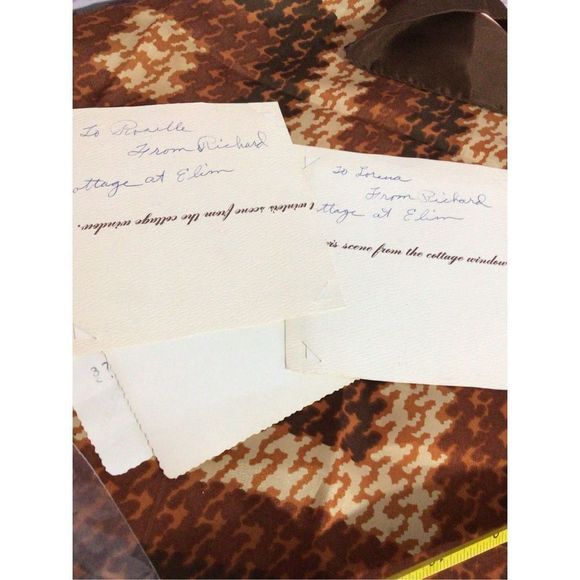 To Rozelle
From Richard
ottage at Elim
winter's scene from the cottage window.
To Lorena
From Richard
ttage at Elim
is scene from the cottage window
37